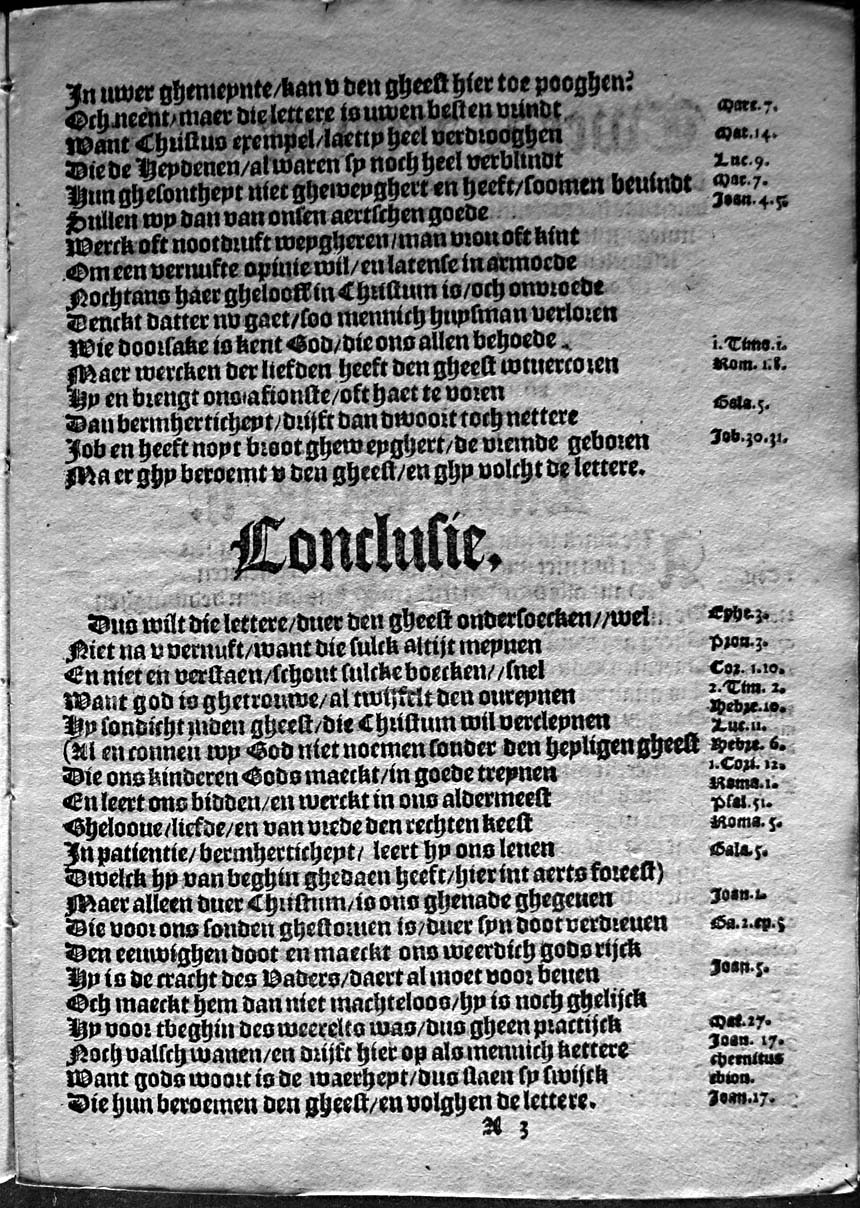 In uwer ghemeynte/kan v den gheest hier toe pooghen? 
Och neent/maer die lettere is uwen besten vrindt Marc. 7.
Want Christus exempel/laetty heel verdrooghen Mat.14.
Die de Heydenen/al waren sy noch heel verblindt Luc.9.
Hun ghesontheyt niet gheweyghert en heeft/soomen bevindt Mar.7.
Sullen wy dan van onsen aertschen goede Joan.4.5.
Werck oft nootdruft weygheren/man vrou oft kint
Om een vernufte opinie wil/en latense in armoede
Nochtans haer ghelooff in Christum is/och onvroede
Denckt datter nv gaet/soo mennich huysman verloren
Wie doorsake is kent God/die ons allen behoede. 1.Timo.1.
Maer wercken der liefden heeft den gheest wtuercoren Rom. 1.8.
Hy en brengt ons afionste/oft haet te voren
Dan bermherticheyt/drijft dan dwoort toch nettere Gala.5.
Job en heeft noyt broot gheweyghert/de vremde geboren Job.30.31.
Maer ghy beroemt v den gheest/en ghy volcht de lettere.
Conclusie.
Dus wilt die lettere/duer den gheest ondersoecken//wel Ephe.3.
Niet na v vernuft/want die sulck altijt meynen Prou.3.
En niet en verstaen/schout sulcke boecken//snel Cor. 1.10.
Want god is ghetrouwe/al twijfelt den oureynen 2. Tim. 2.
Hebre.10.
Hy sondicht inden gheest/die Christum wil vercleynen Luc.11.
(Al en connen wy God niet noemen sonder den heyligen gheest Hebre. 6.
Die ons kinderen Gods maeckt/in goede treynen 1.Cori. 12.
Roma.1.
En leert ons bidden/en werckt in ons aldermeest Psal.51.
Gheloove/liefde/en van vrede den rechten keest Roma. 5.
In patientie/bermherticheyt/ leert hy ons leuen Gala.5.
Dwelck hy van beghin ghedaen heeft/hier int aerts foreest)
Maer alleen duer Christum/is ons ghenade ghegeuen Joan.1.
Die voor ons sonden ghestoruen is/duer syn doot verdreuen Ga.1.ep.5
Den eeuwighen doot en maeckt ons weerdich gods rijck
Hy is de cracht des Vaders/daert al moet voor beuen Joan.5.
Och maeckt hem dan niet machteloos/hy is noch ghelijck
Hy voor tbeghin des weerelts was/dus gheen practijck Mat.27.
Joan. 17.
Noch valsch wanen/en drijft hier op als mennich kettere chernitus
Want gods woort is de waerheyt/dus staen sy swijck ebion.
Die hun beroemen den gheest/en volghen de lettere. Joan.17.
A 3